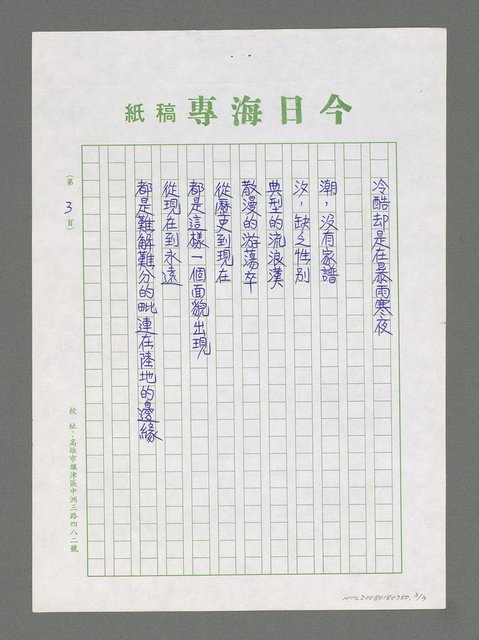 今日海專稿紙
冷酷却是在暴雨寒夜
潮，沒有家譜
汐，缺乏性別
典型的流浪漢
散漫的游蕩卒
從歷史到現在
都是這樣一個面貌出現
從現在到永遠
都是難解難分的毗連在陸地的邊緣
（第3頁）
校址：高雄市旗津區中洲三路四八二號
HYTL20080180750, 3/3